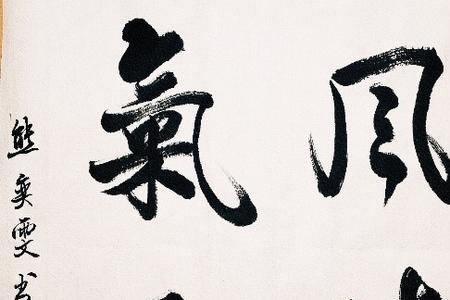 風
氣
熊奕雯书